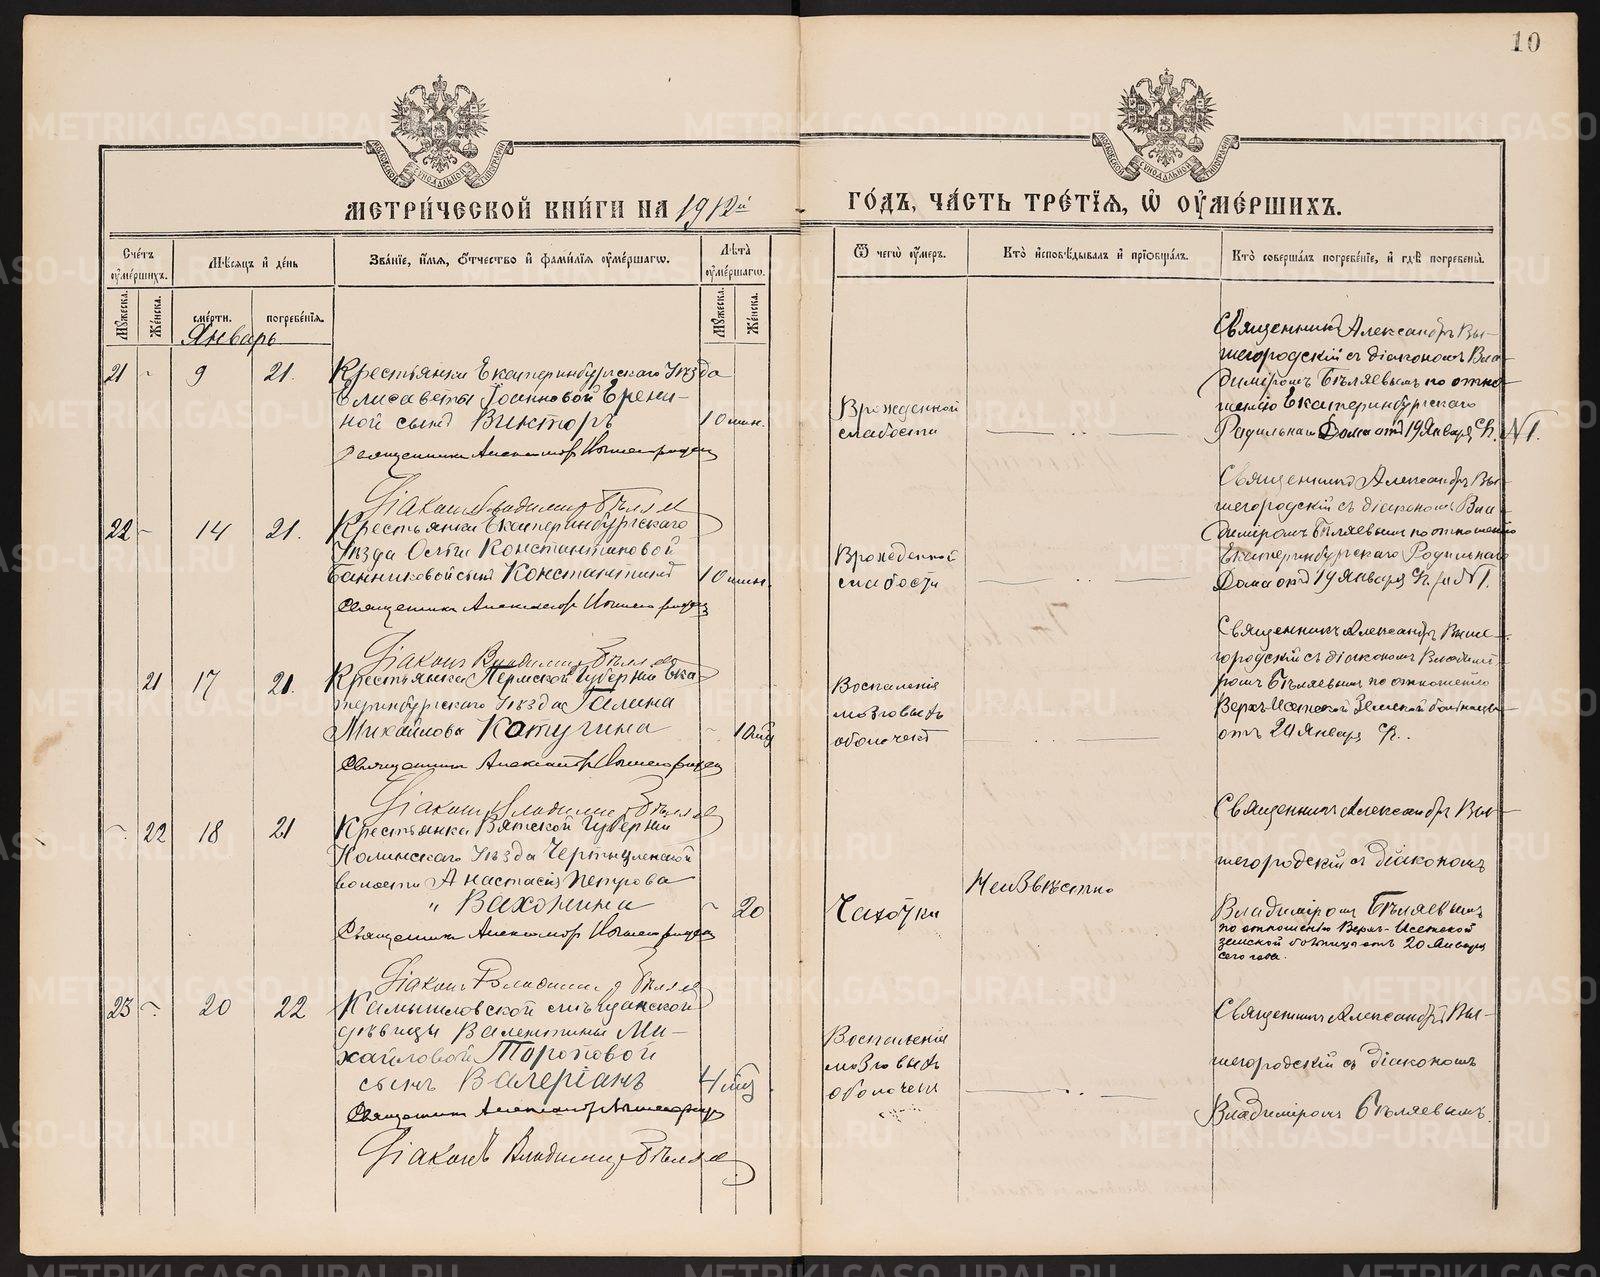 10
МЕТРИЧЕСКОЙ КНИГИ НА 1912й ГОДЪ, ЧАСТЬ ТРЕТІЯ, Ѿ ОУМЕРШИХЪ.
Счетъ оумершихъ.
Мѣсяцъ и день
Званіе, имя, отчество и фамилія оумершагѡ.
Лѣта оумершагѡ.
Ѿ чегѡ оумеръ.
Кто исповѣдывалъ и пріобщалъ.
Кто совершалъ погребеніе, и гдѣ погребены.
Мужеска.
Женска.
смерти.
погребенія.
Мужеска.
Женска.
Январь
21 - 9 21.
Крестьянки Екатеринбургскаго Уѣзда
Елисаветы Іоанновой Ерени-
ной сынъ Викторъ
10 мин.
Священникъ Александръ Вышегородскій
Діаконъ Владиміръ Бѣляев
Врожденной
слабости
Священникъ Александръ Вы-
шегородскій съ діакономъ Вла-
диміромъ Бѣляевымъ по отно-
шенію Екатеринбургскаго
Родильнаго Дома отъ 19 Января с/г. №1.
22 - 14 21.
Крестьянки Екатеринбургскаго
Уѣзда Ольги Константиновой
Банниковой сынъ Константинъ
10 мин.
Священникъ Александръ Вышегородскій
Діаконъ Владиміръ Бѣляев
Врожденной
слабости
Священникъ Александръ Вы-
шегородскій съ діакономъ Вла-
диміромъ Бѣляевымъ по отношенію
Екатеринбургскаго Родильнаго
Дома отъ 19 Января с/г. №1.
21 17 21.
Крестьянка Пермской Губерніи Ека-
теринбургскаго Уѣзда Галина
Михайлова Катугина
- 10 мц
Священникъ Александръ Вышегородскій
Діаконъ Владиміръ Бѣляев
Воспаленія
мозговыхъ
оболочекъ
Священникъ Александръ Выше-
городскій съ діакономъ Владимі-
ромъ Бѣляевымъ по отношенію
Верхъ-Исетской Земской больницы
отъ 20 Января с/г.
- 22 18 21
Крестьянка Вятской Губерніи
Нолинскаго Уѣзда
волости Анастасія Петрова
" Вахонина
- 20
Священникъ Александръ Вышегородскій
Діаконъ Владиміръ Бѣляев
Чахотки
Неизвѣстно
Священникъ Александръ Вы-
шегородскій съ діакономъ
Владиміромъ Бѣляевымъ
по отношенію Верхъ-Исетской
земской больницы отъ 20 Января
сего года.
23 - 20 22
Камышловской мѣщанской
дѣвицы Валентины Ми-
хайловой Тороповой
сынъ Валеріанъ
4 мц.
Священникъ Александръ Вышегородскій
Діаконъ Владиміръ Бѣляев
Воспаленія
мозговыхъ
оболочекъ
Священникъ Александръ Вы-
шегородскій съ діакономъ
Владиміромъ Бѣляевымъ.
METRIKI.GASO-URAL.RU